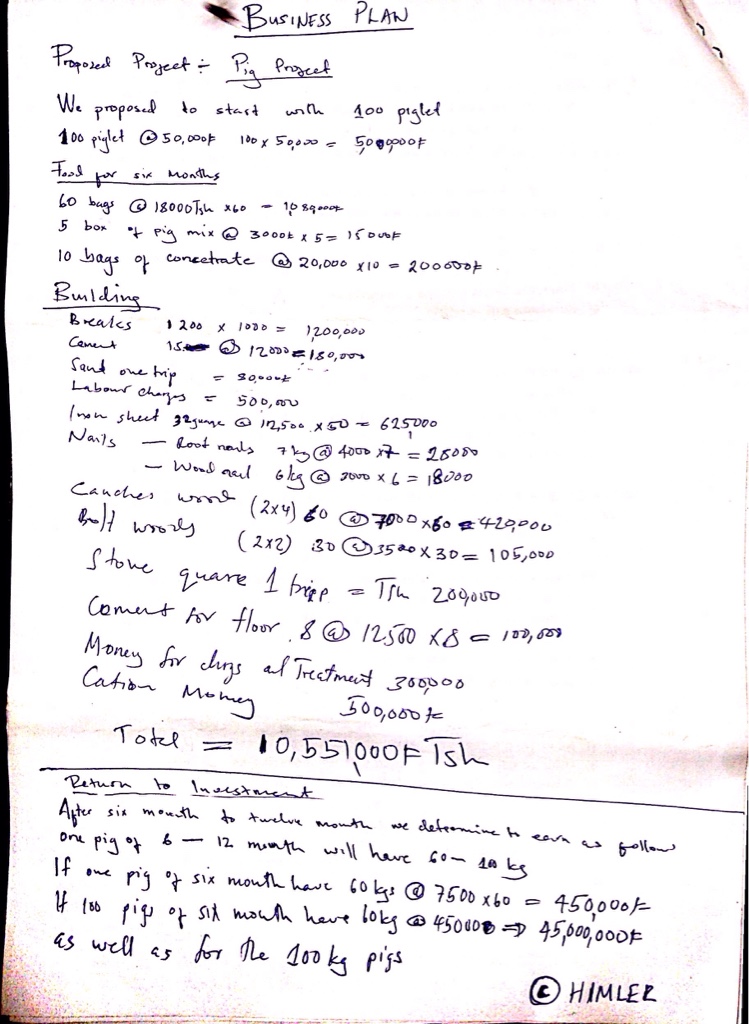 BUSINESS PLAN
Proposed Project ÷ Pig Project
We proposed to start with 100 piglet
100 piglet @ 50,000/= 100 x 50,000 = 5,000,000/=
Food for six months
60 bags @ 18000 Tsh x60 = 1,080,000/=
5 box of pig mix @ 3000/= x 5 = 15000/=
10 bags of concetrate @ 20,000 x10 = 200000/=
Building
Breaks 1200 x 1000 = 1,200,000
Cement 15 @ 12000 = 180,000
Sand one trip = 80,000/=
Labour charges = 500,000
Iron sheet 32gauge @ 12,500 x 50 = 625000
Nails — Roof nails 7kg @ 4000 x7 = 28000
— Wood nail 6kg @ 3000 x 6 = 18000
wood (2x4) 60 @ 7000 x60 = 420,000
woods (2x2) 30 @ 3500 x 30 = 105,000
Stone 1 tripp = Tsh 200,000
Cement for floor 8 @ 12500 x8 = 100,000
Money for drugs and Treatment 300,000
Cation Money 500,000/=
Total = 10,551,000/= Tsh
Return to Investment
After six mounth to twelve mounth we determine to earn as follow
one pig of 6 — 12 month will have 60 - 100 kg
If one pig of six mounth have 60 kgs @ 7500 x60 = 450,000/=
If 100 pigs of six mounth have 60kg @ 450000 => 45,000,000/=
as well as for the 100kg pigs
© HIMLER